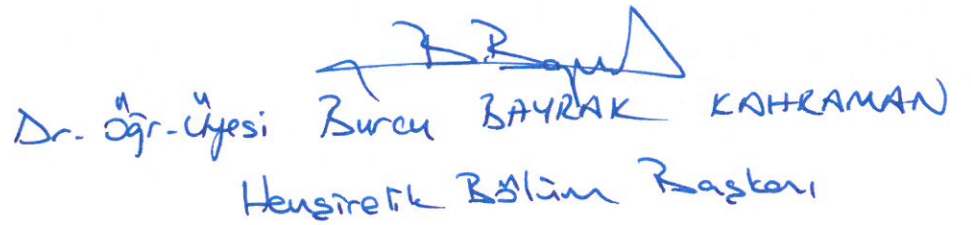 Dr. Öğr. Üyesi Burcu BAYRAK KAHRAMAN
Hemşirelik Bölüm Başkanı